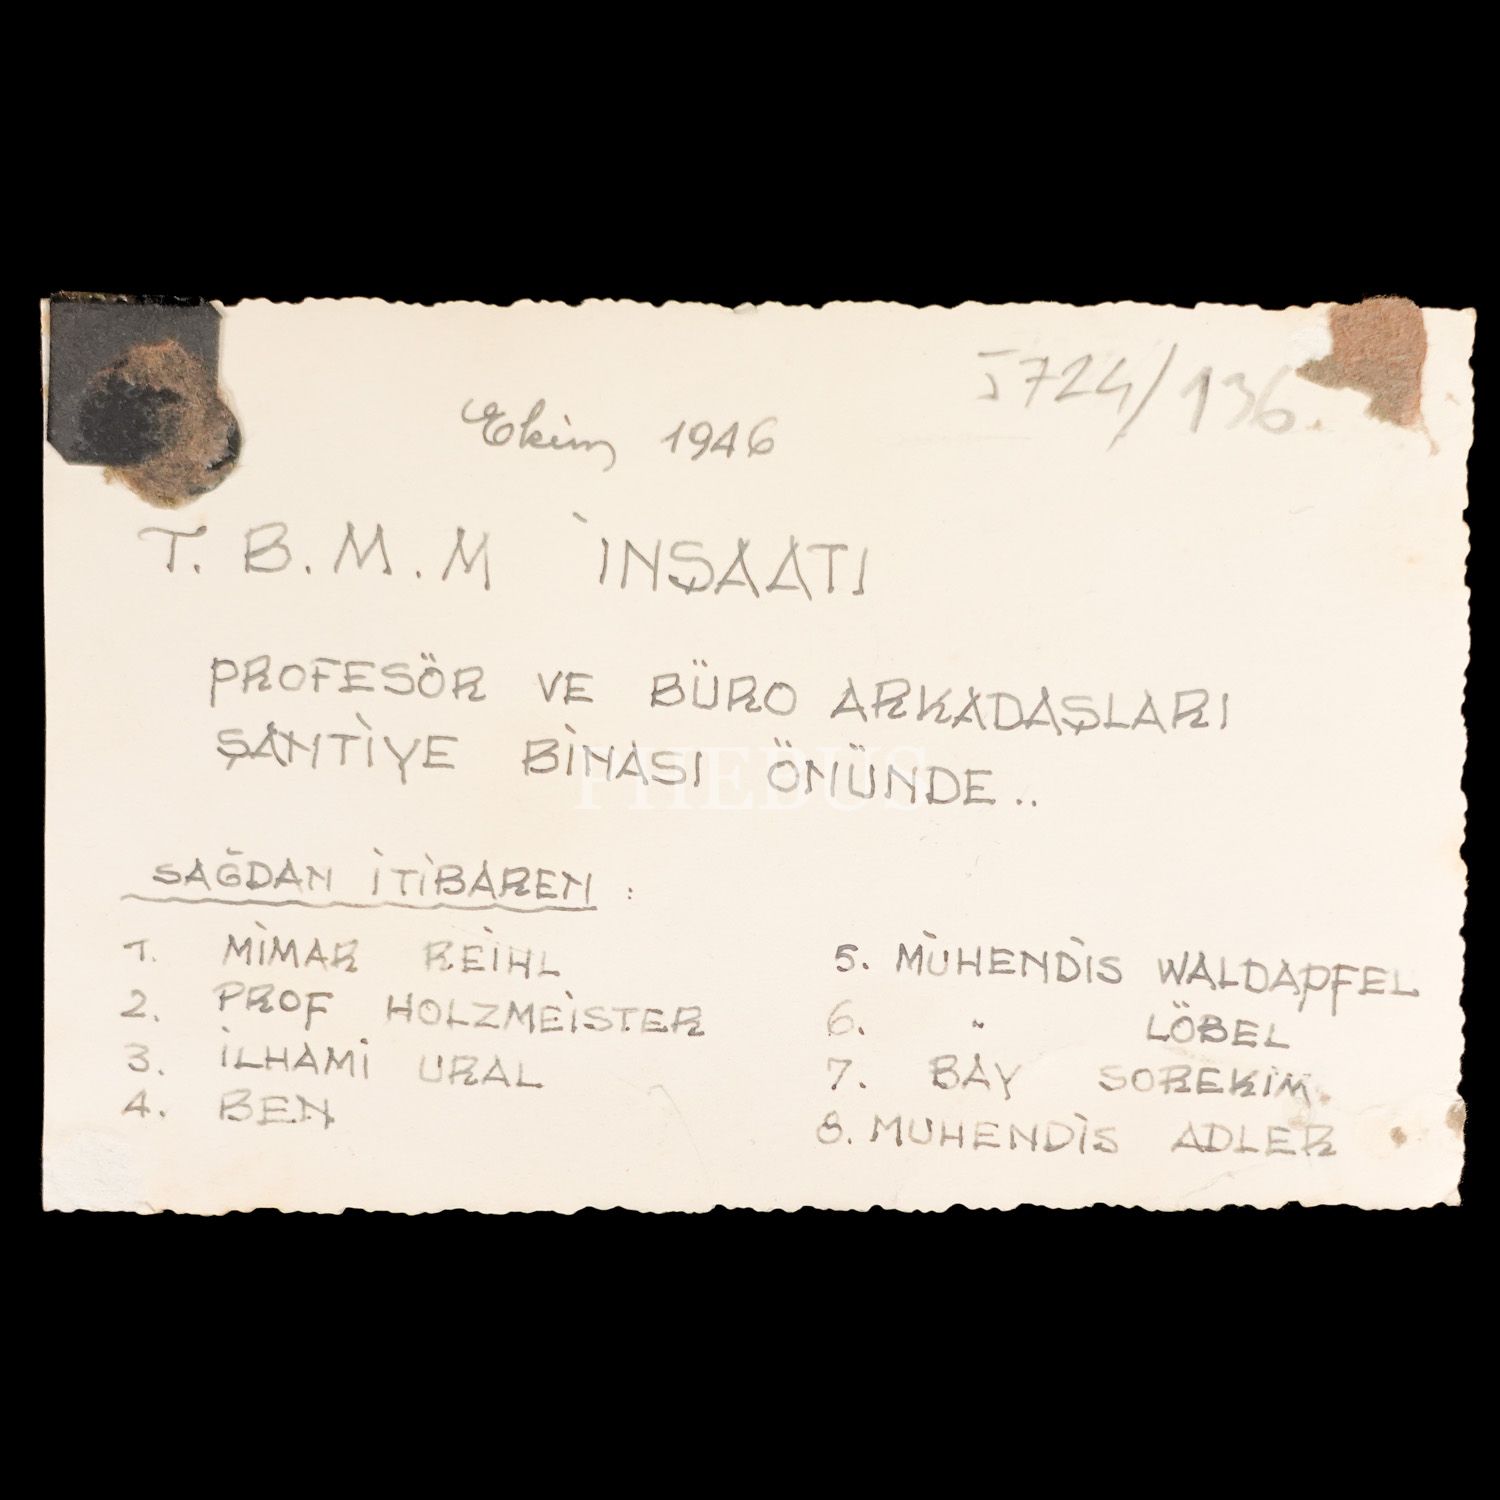 J724/136.
Ekim 1946
T.B.M.M İNŞAATI
PROFESÖR VE BÜRO ARKADAŞLARI
ŞANTİYE BİNASI ÖNÜNDE..
PHEBUS
SAĞDAN İTİBAREN :
1. MİMAR REİHL
2. PROF HOLZMEİSTER
3. İLHAMİ URAL
4. BEN
5. MÜHENDİS WALDAPFEL
6. " LÖBEL
7. BAY SOREKİM.
8. MUHENDİS ADLER